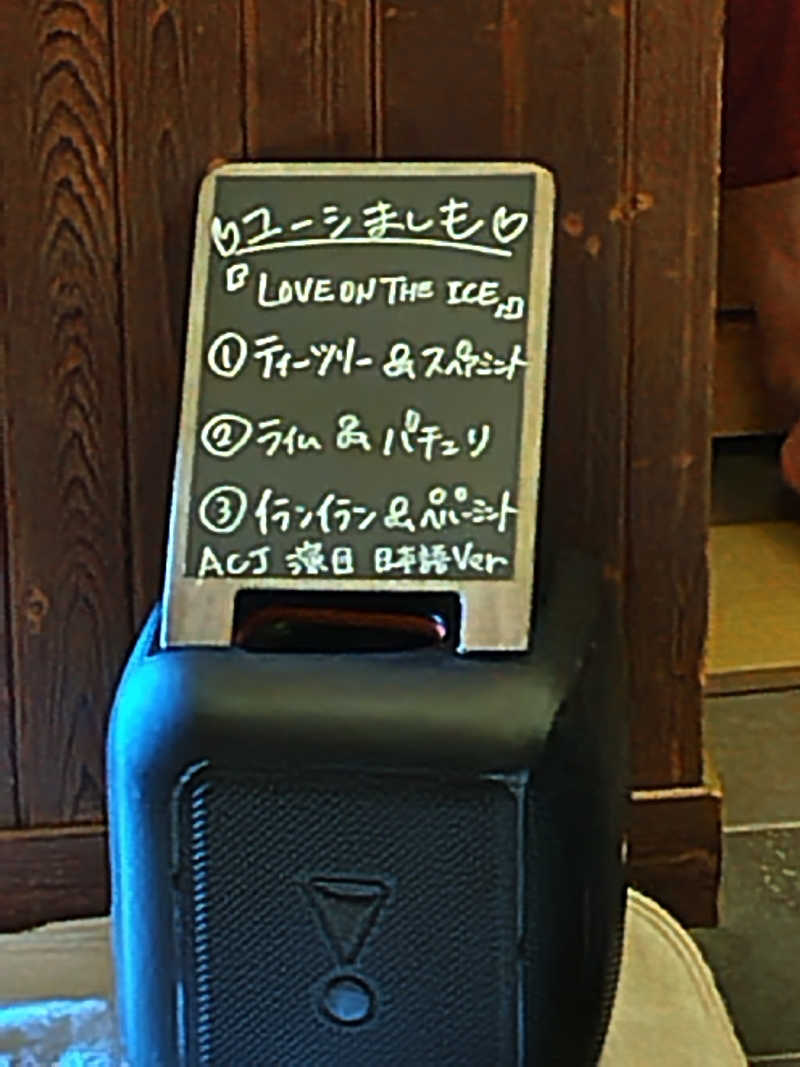 ♡ユーシましも♡
『LOVE ON THE ICE』
①ティーツリー&スペアミント
②ライム&パチュリ
③イランイラン&ペパーミント
ACJ 演目 日本語Ver